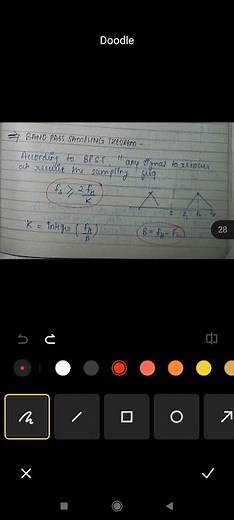 Doodle
⇒ BAND PASS SAMPLING THEOREM -
According to BPST, "any signal to recover
at receive the sampling
fs ≥ 2fH / K
K = integer (fH / B)
B = fH - fL
28